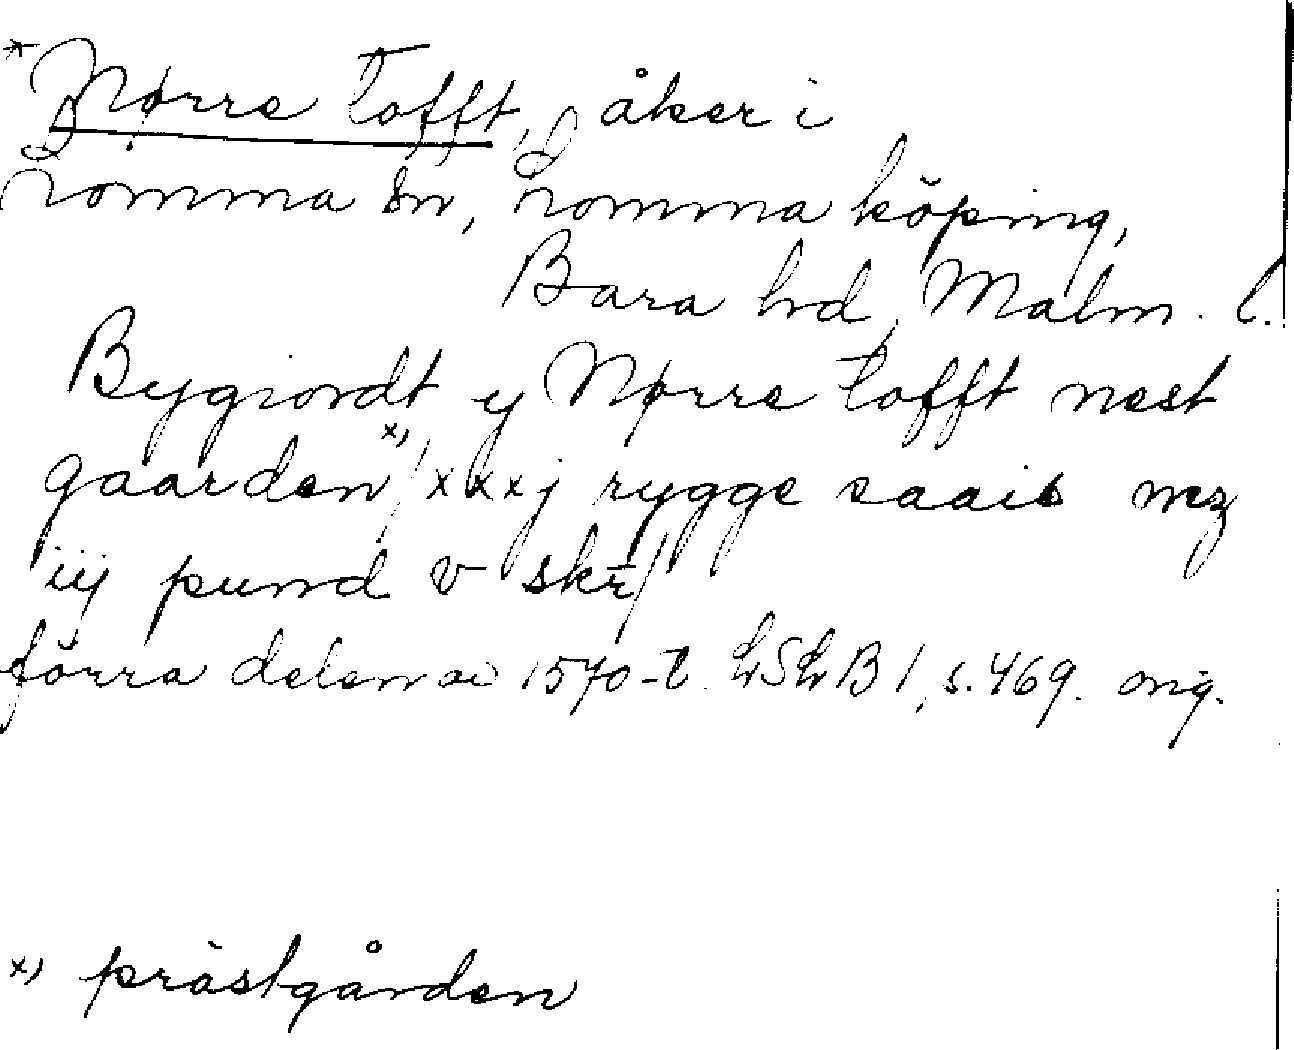 *Nørre Tofft, åker i
Lomma sn, Lomma köping,
Bara hd, Malm. l.
Bygiordt y Nørre tofft nest
gaarden x) / xxxj rygge saais mz
iij pund v skr /
förra delen av 1570-t. LSLB 1, s. 469. orig.
x) prästgården